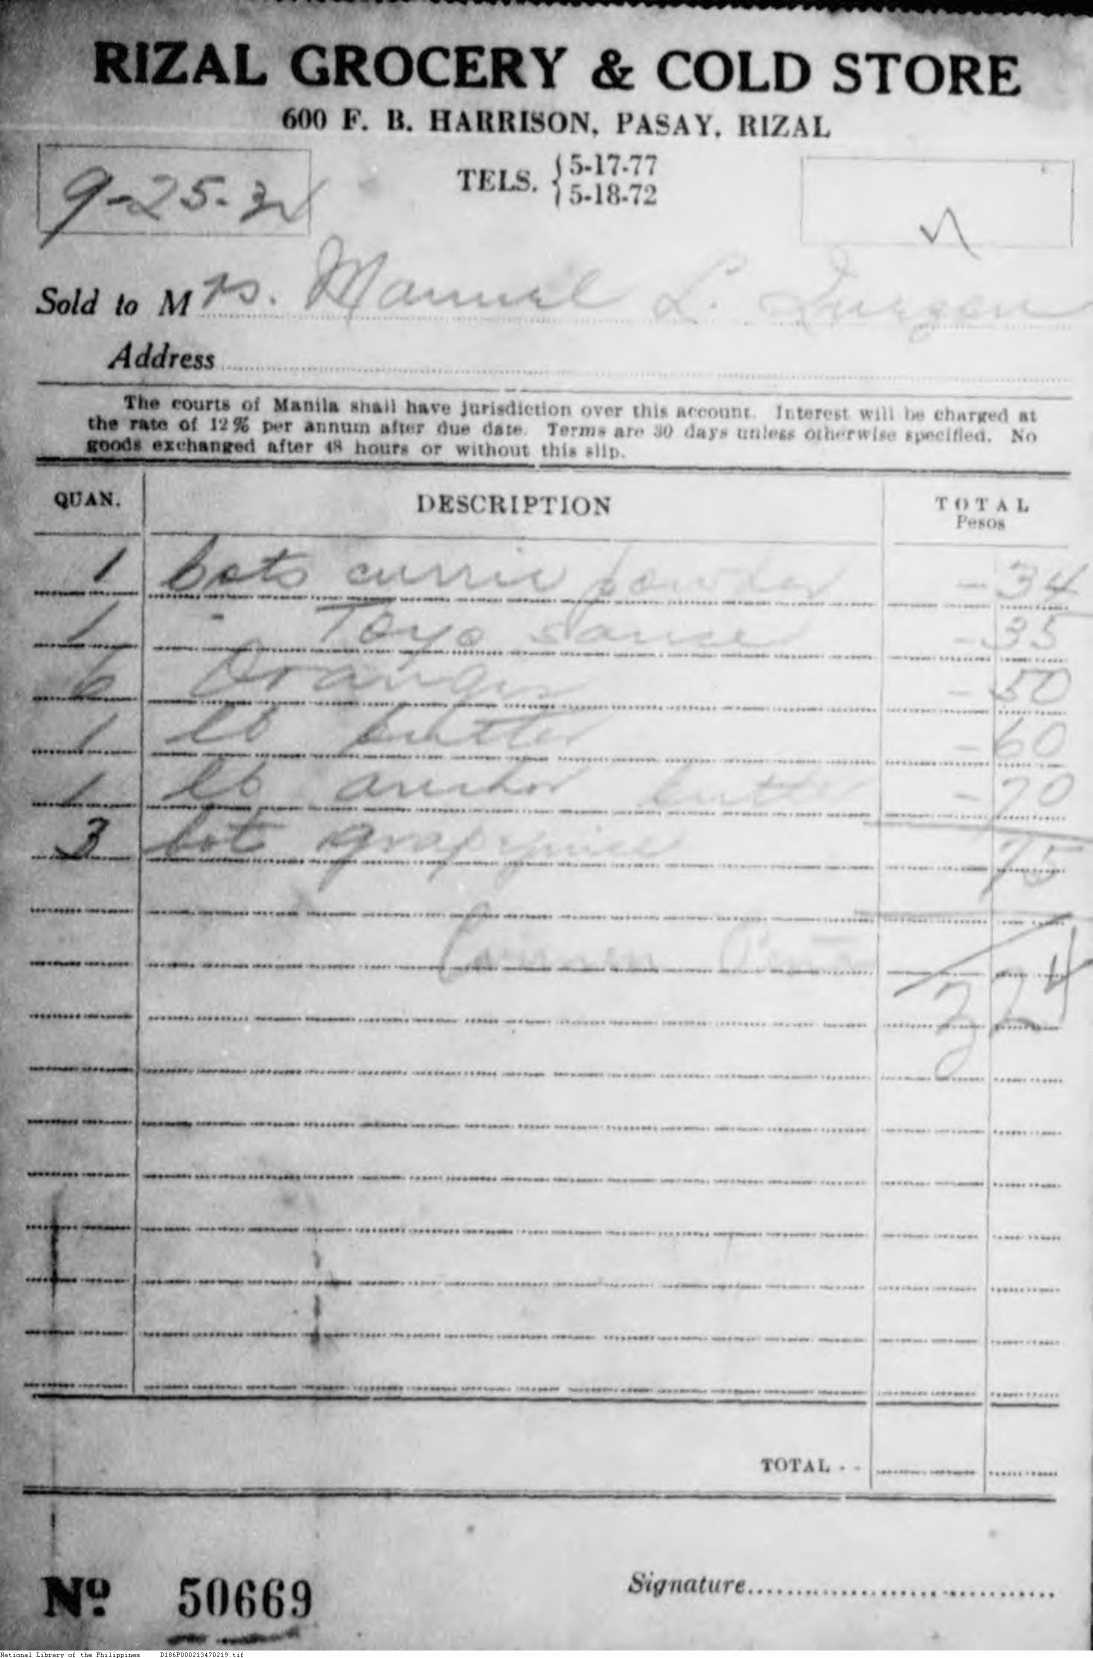 RIZAL GROCERY & COLD STORE
600 F. B. HARRISON, PASAY, RIZAL
TELS. { 5-17-77
5-18-72
9-25-32
Sold to Mrs. Manuel L. Quezon
Address
The courts of Manila shall have jurisdiction over this account. Interest will be charged at
the rate of 12% per annum after due date. Terms are 30 days unless otherwise specified. No
goods exchanged after 48 hours or without this slip.
QUAN. DESCRIPTION TOTAL
Pesos
1 bots currie powder - 34
1 " Toyo sauce - 35
6 Oranges - 50
1 lb butter - 60
1 lb anchor butter - 70
3 bot grapejuice - 75
Carmen
3 24
TOTAL - -
Nº 50669
Signature
National Library of the Philippines D186P000213470219.tif